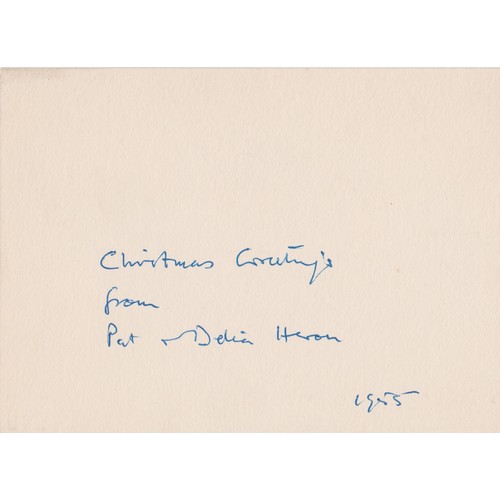 Christmas Greetings
from
Pat & Delia Heron
1955